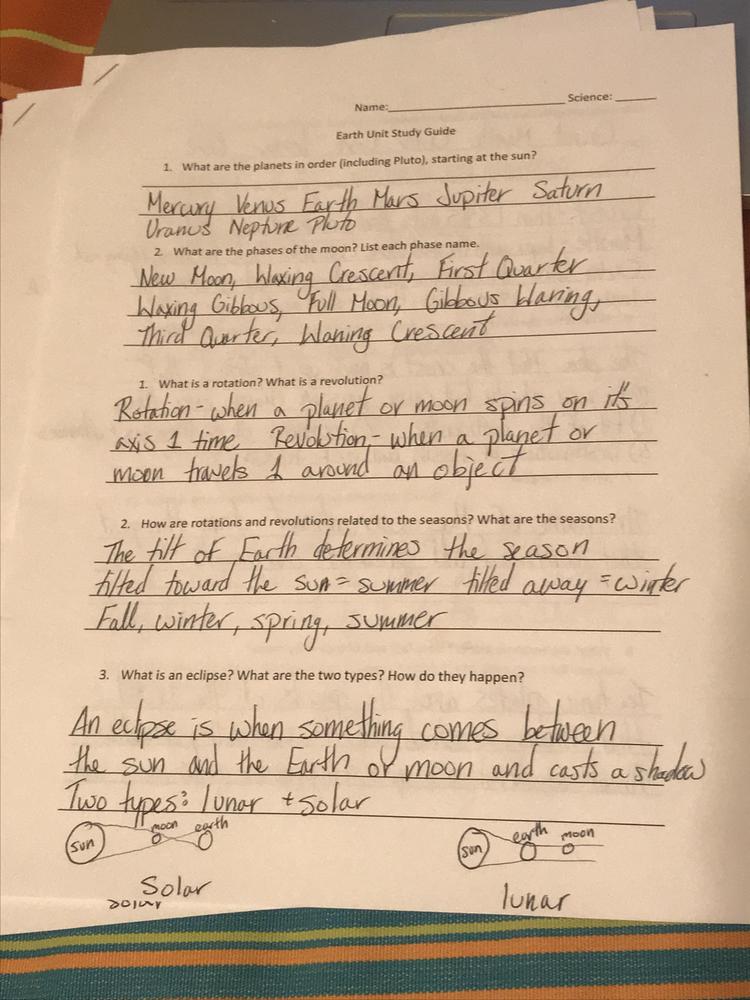 Name:____________ Science: ______
Earth Unit Study Guide
1. What are the planets in order (including Pluto), starting at the sun?
Mercury Venus Earth Mars Jupiter Saturn
Uranus Neptune Pluto
2. What are the phases of the moon? List each phase name.
New Moon, Waxing Crescent, First Quarter
Waxing Gibbous, Full Moon, Gibbous Waning,
Third Quarter, Waning Crescent
1. What is a rotation? What is a revolution?
Rotation - when a planet or moon spins on its
axis 1 time Revolution - when a planet or
moon travels 1 around an object
2. How are rotations and revolutions related to the seasons? What are the seasons?
The tilt of Earth determines the season
tilted toward the sun = summer tilted away = winter
Fall, winter, spring, summer
3. What is an eclipse? What are the two types? How do they happen?
An eclipse is when something comes between
the sun and the Earth or moon and casts a shadow
Two types: lunar + solar
sun moon earth sun earth moon
Solar lunar
solar